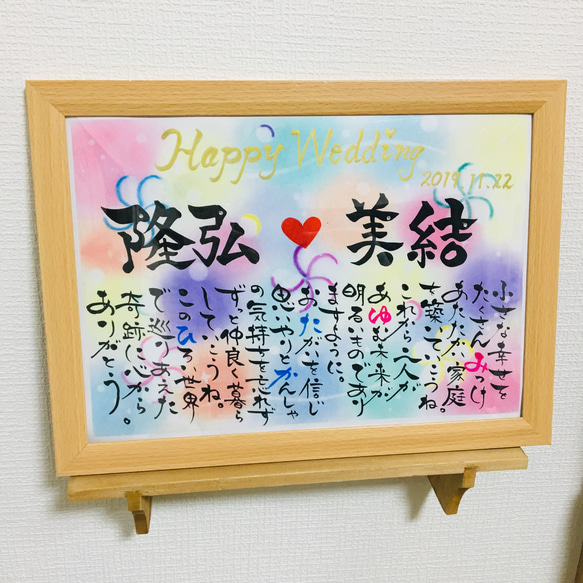 Happy Wedding
2019.11.22
隆弘 ♥ 美結
小さな幸せを
たくさんみつけ
あたたか家庭
を築いていこうね。
これから二人が
あゆむ未来が
明るいものであり
ますように。
おたがいを信じ
思いやりとかんしゃ
の気持ちを忘れず
ずっと仲良く暮ら
していこうね。
このひろい世界
で巡りあえた
奇跡に心から
ありがとう。